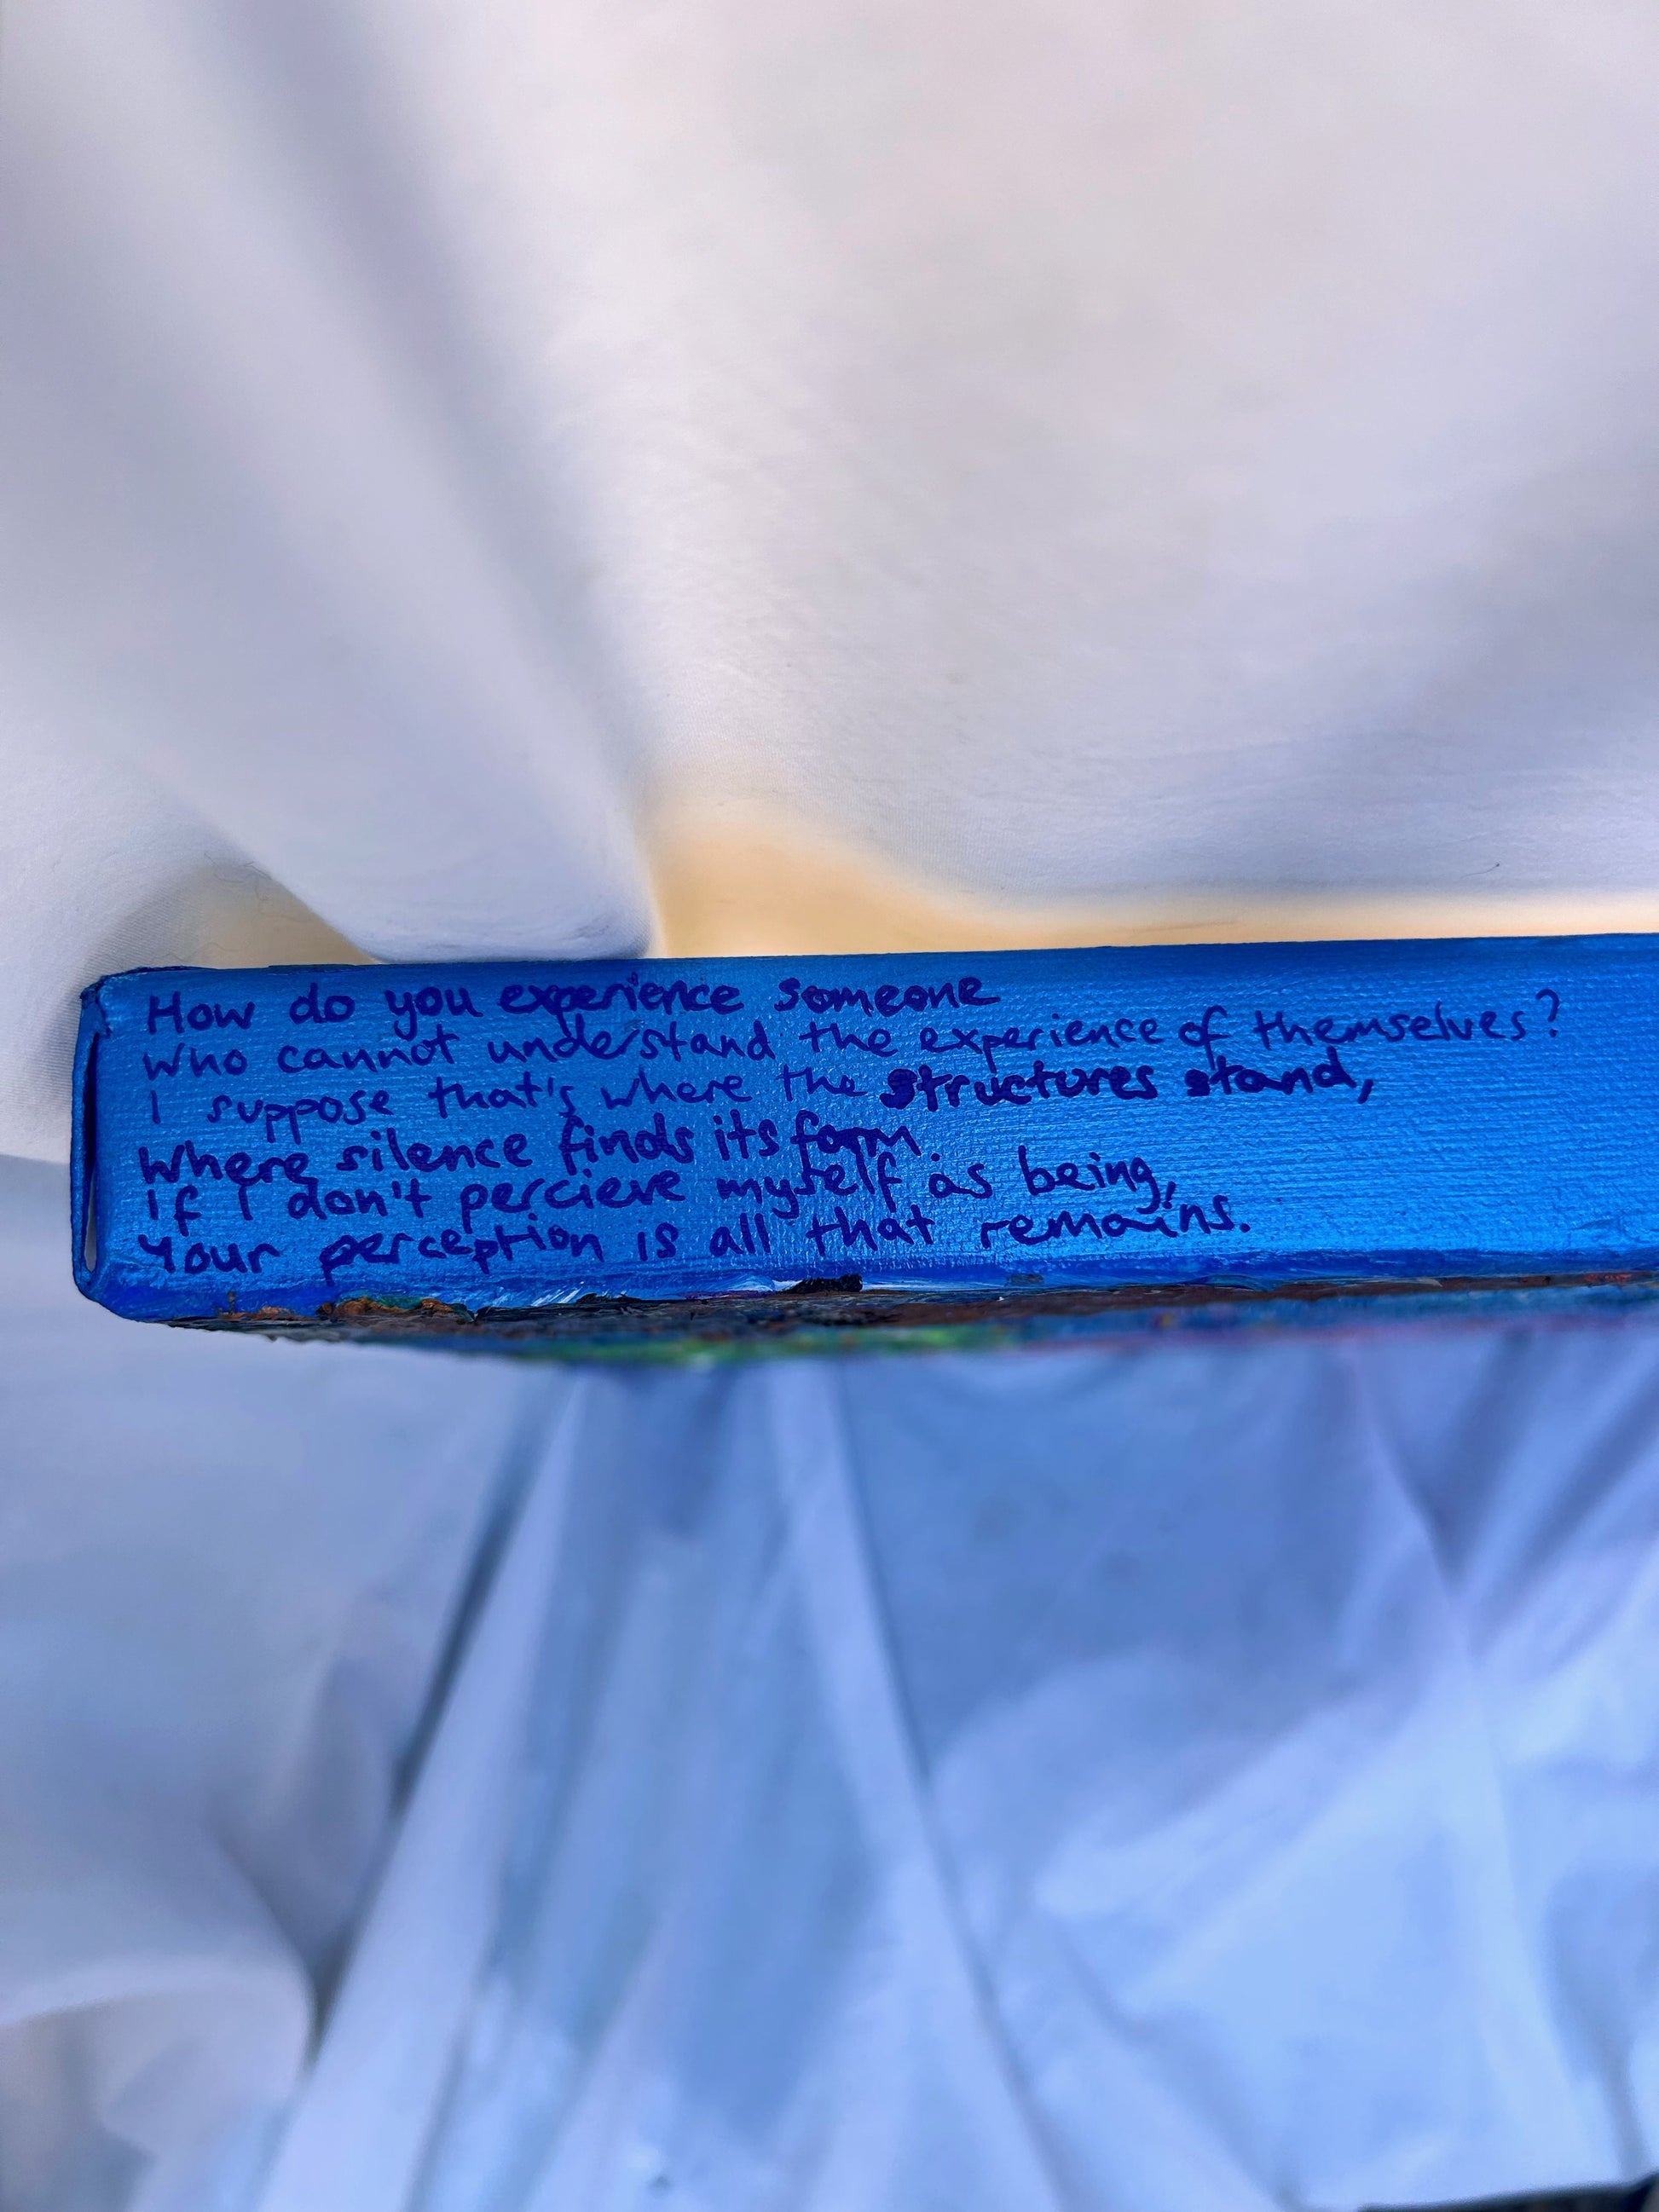 How do you experience someone
Who cannot understand the experience of themselves?
I suppose that's where the structures stand,
Where silence finds its form.
If I don't percieve myself as being,
Your perception is all that remains.